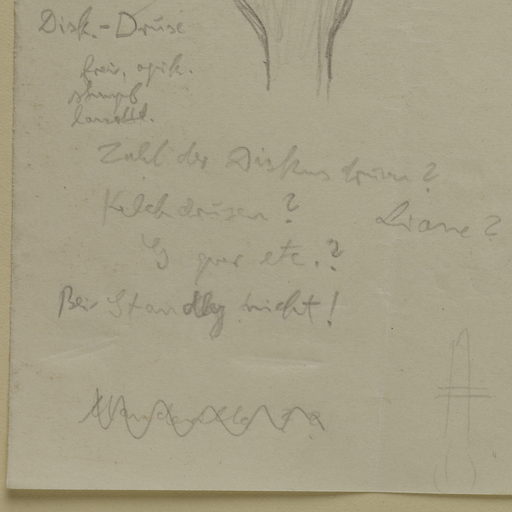 Disk.-Drüse
frei, apik.
stumpf
lanzettl.
Zahl der Diskusdrüsen?
Kelchdrüsen?
Liane?
quer etc.?
Bei Standley nicht!